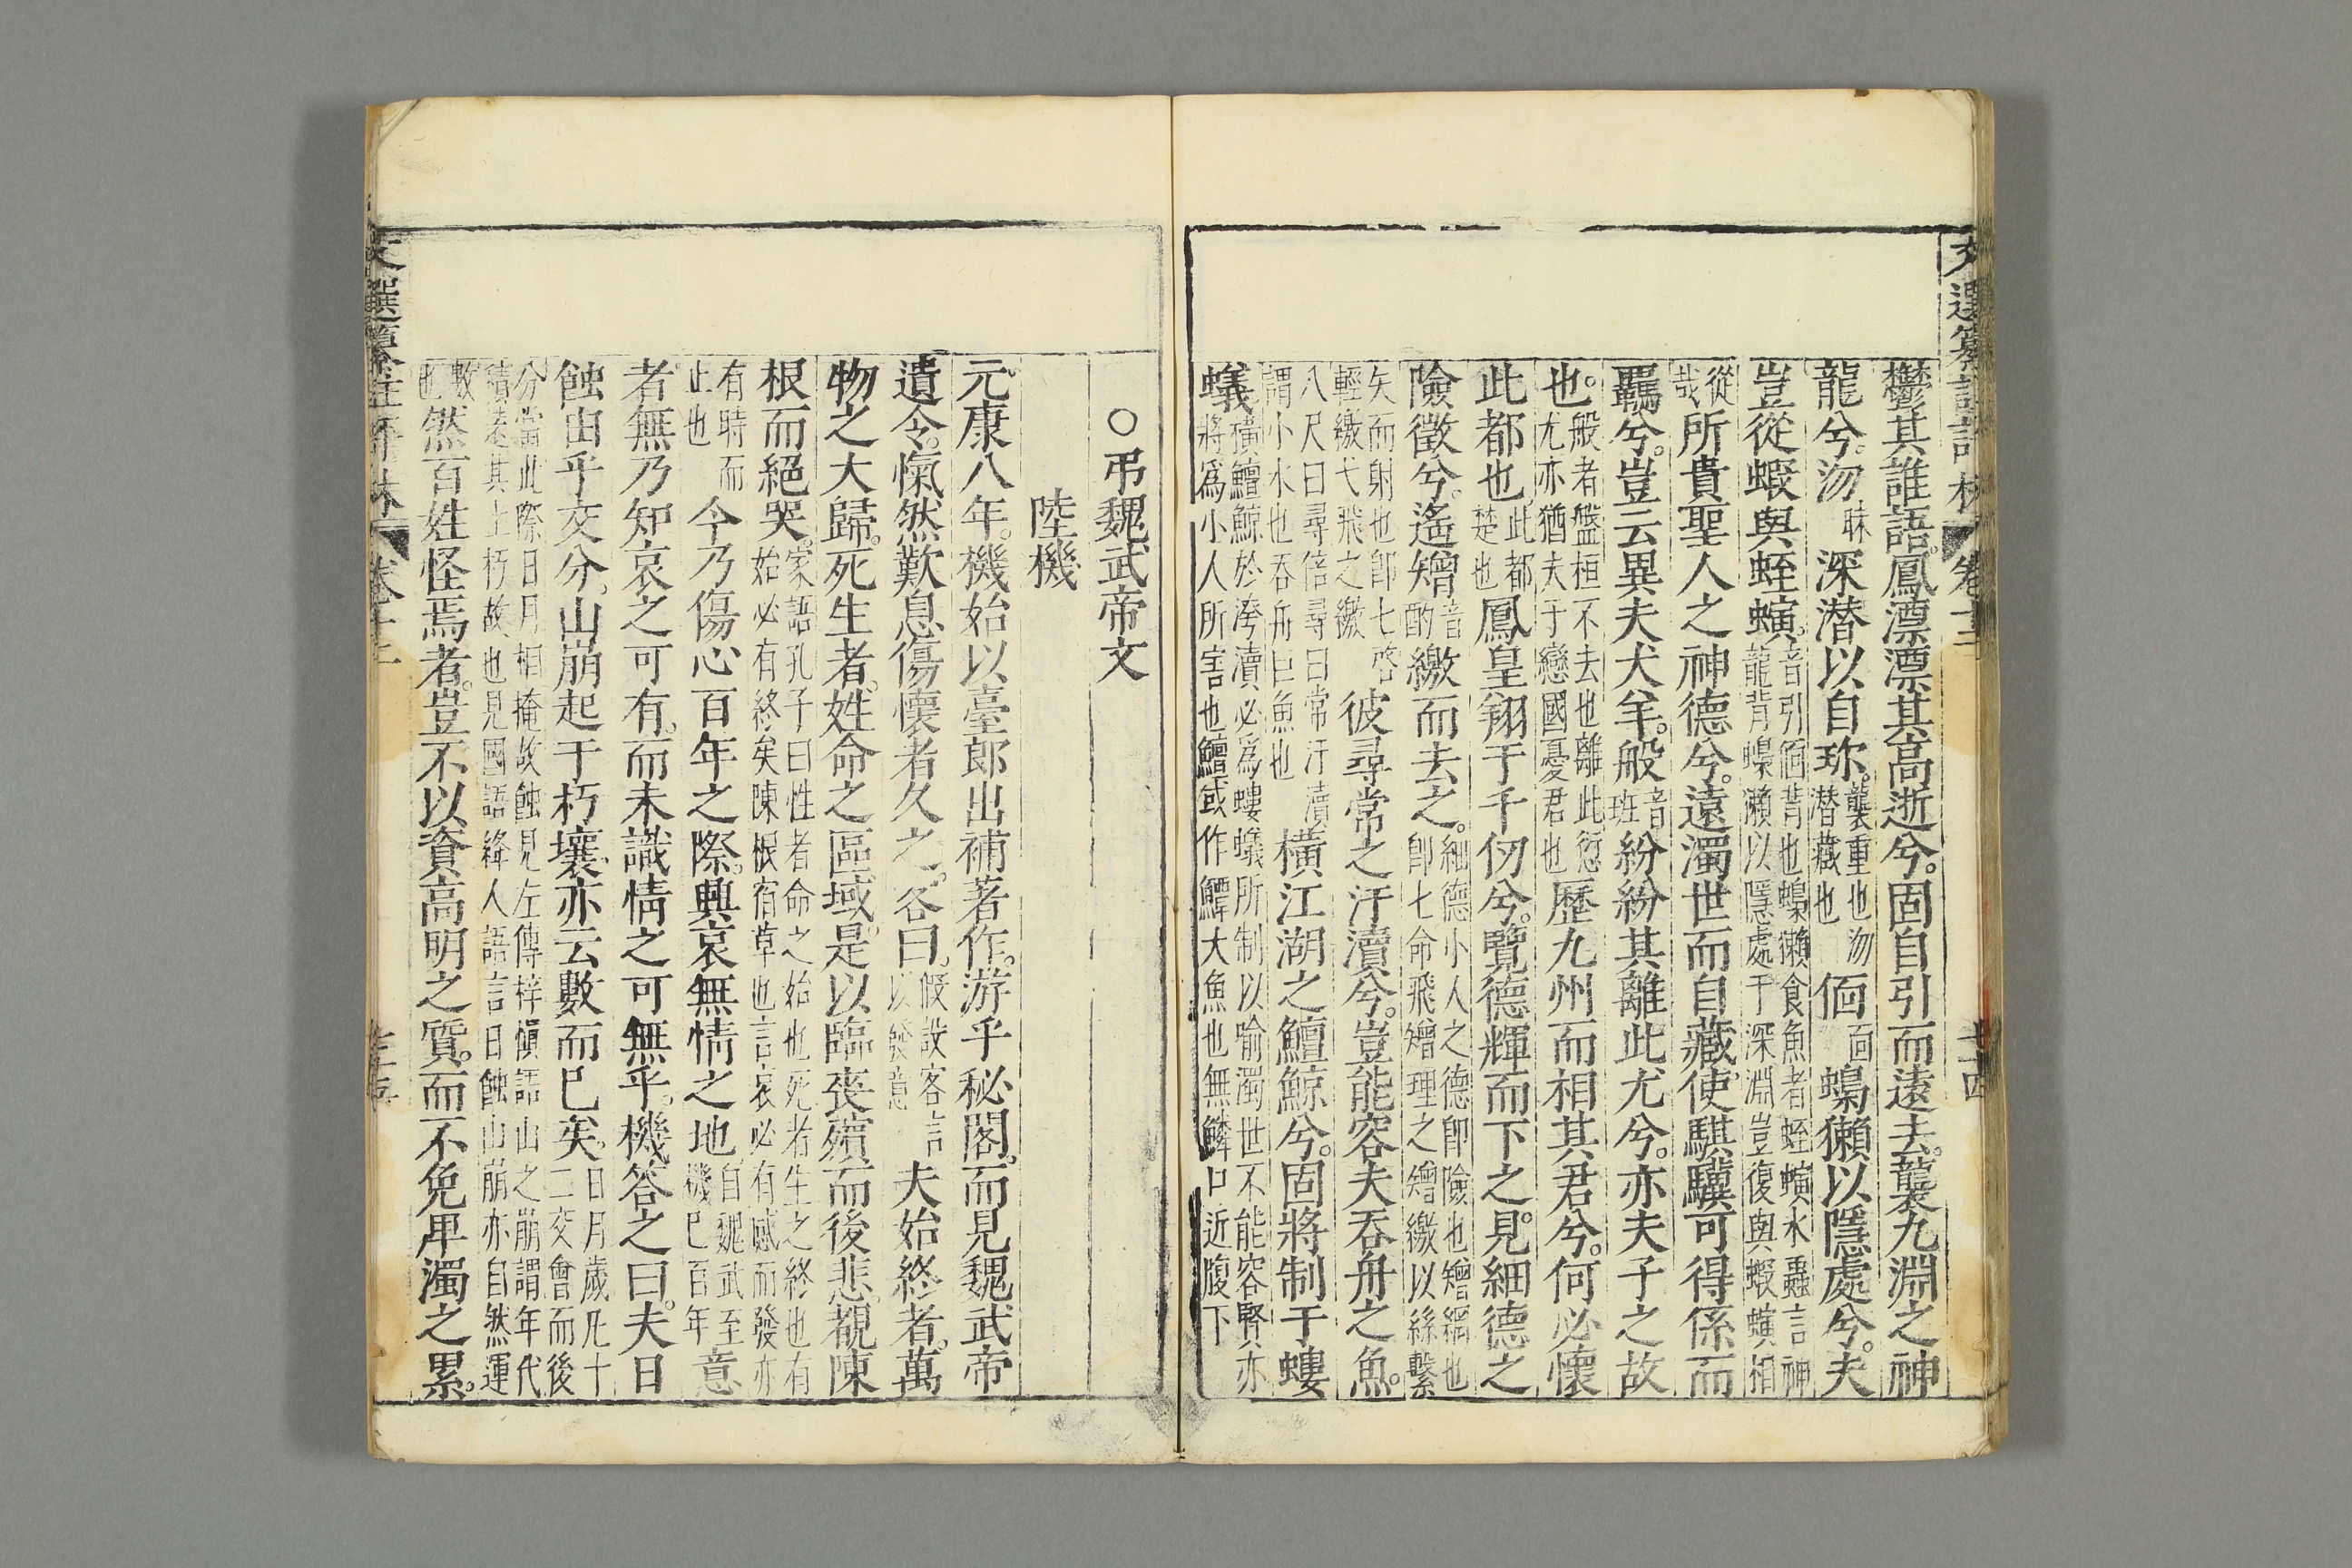 鬱其誰語。鳳漂漂其高逝兮。固自引而遠去。襲九淵之神
龍兮。沕昧深潛以自珍。襲重也沕潛藏也偭面蟂獺以隱處兮。夫
豈從蝦與蛭螾。音引偭背也蟂獺食魚者蛭螾水蟲言神龍背蟂獺以隱處于深淵豈復與蝦螾相
從哉所貴聖人之神德兮。遠濁世而自藏。使騏驥可得係而
羈兮。豈云異夫犬羊。般音班紛紛其離此尤兮。亦夫子之故
也。般者盤桓不去也離此愆尤亦猶夫子戀國憂君也歷九州而相其君兮。何必懷
此都也此都楚也鳳皇翔于千仞兮。覽德輝而下之。見細德之
險徵兮。遙矰音酌繳而去之。細德小人之德卽險也矰綱也卽七命飛矰理之矰繳以絲繫
矢而射也卽七啓輕繳弋飛之繳彼尋常之汙瀆兮。豈能容夫吞舟之魚。
八尺曰尋倍尋曰常汙瀆謂小水也吞舟巨魚也橫江湖之鱣鯨兮。固將制于螻
蟻橫鱣鯨於洿瀆必爲螻蟻所制以喻濁世不能容賢亦將爲小人所害也鱣或作鱏大魚也無鱗口近腹下
○弔魏武帝文
陸機
元康八年。機始以臺郎出補著作。游乎秘閣。而見魏武帝
遺令。愾然歎息傷懷者久之。客曰。假設客言以發意夫始終者。萬
物之大歸。死生者。姓命之區域。是以臨喪殯而後悲。覩陳
根而絕哭。家語孔子曰性者命之始也死者生之終也有始必有終矣陳根宿草也言哀必有感而發亦
有時而止也今乃傷心百年之際。興哀無情之地自魏武至機巳百年意
者無乃知哀之可有。而未識情之可無乎。機答之曰。夫日
蝕由乎交分。山崩起于朽壤。亦云數而巳矣。日月歲凡十二交會而後
分當此際日月相掩故蝕見左傳梓愼語山之崩謂年代積遠其上朽故也見國語絳人語言日蝕山崩亦自然運
數也然百姓怪焉者。豈不以資高明之質。而不免卑濁之累。